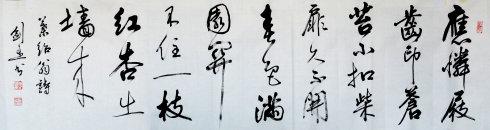 應憐屐
齒印蒼
苔小扣柴
扉久不開
春色滿
園關
不住一枝
紅杏出
墻來
葉紹翁詩